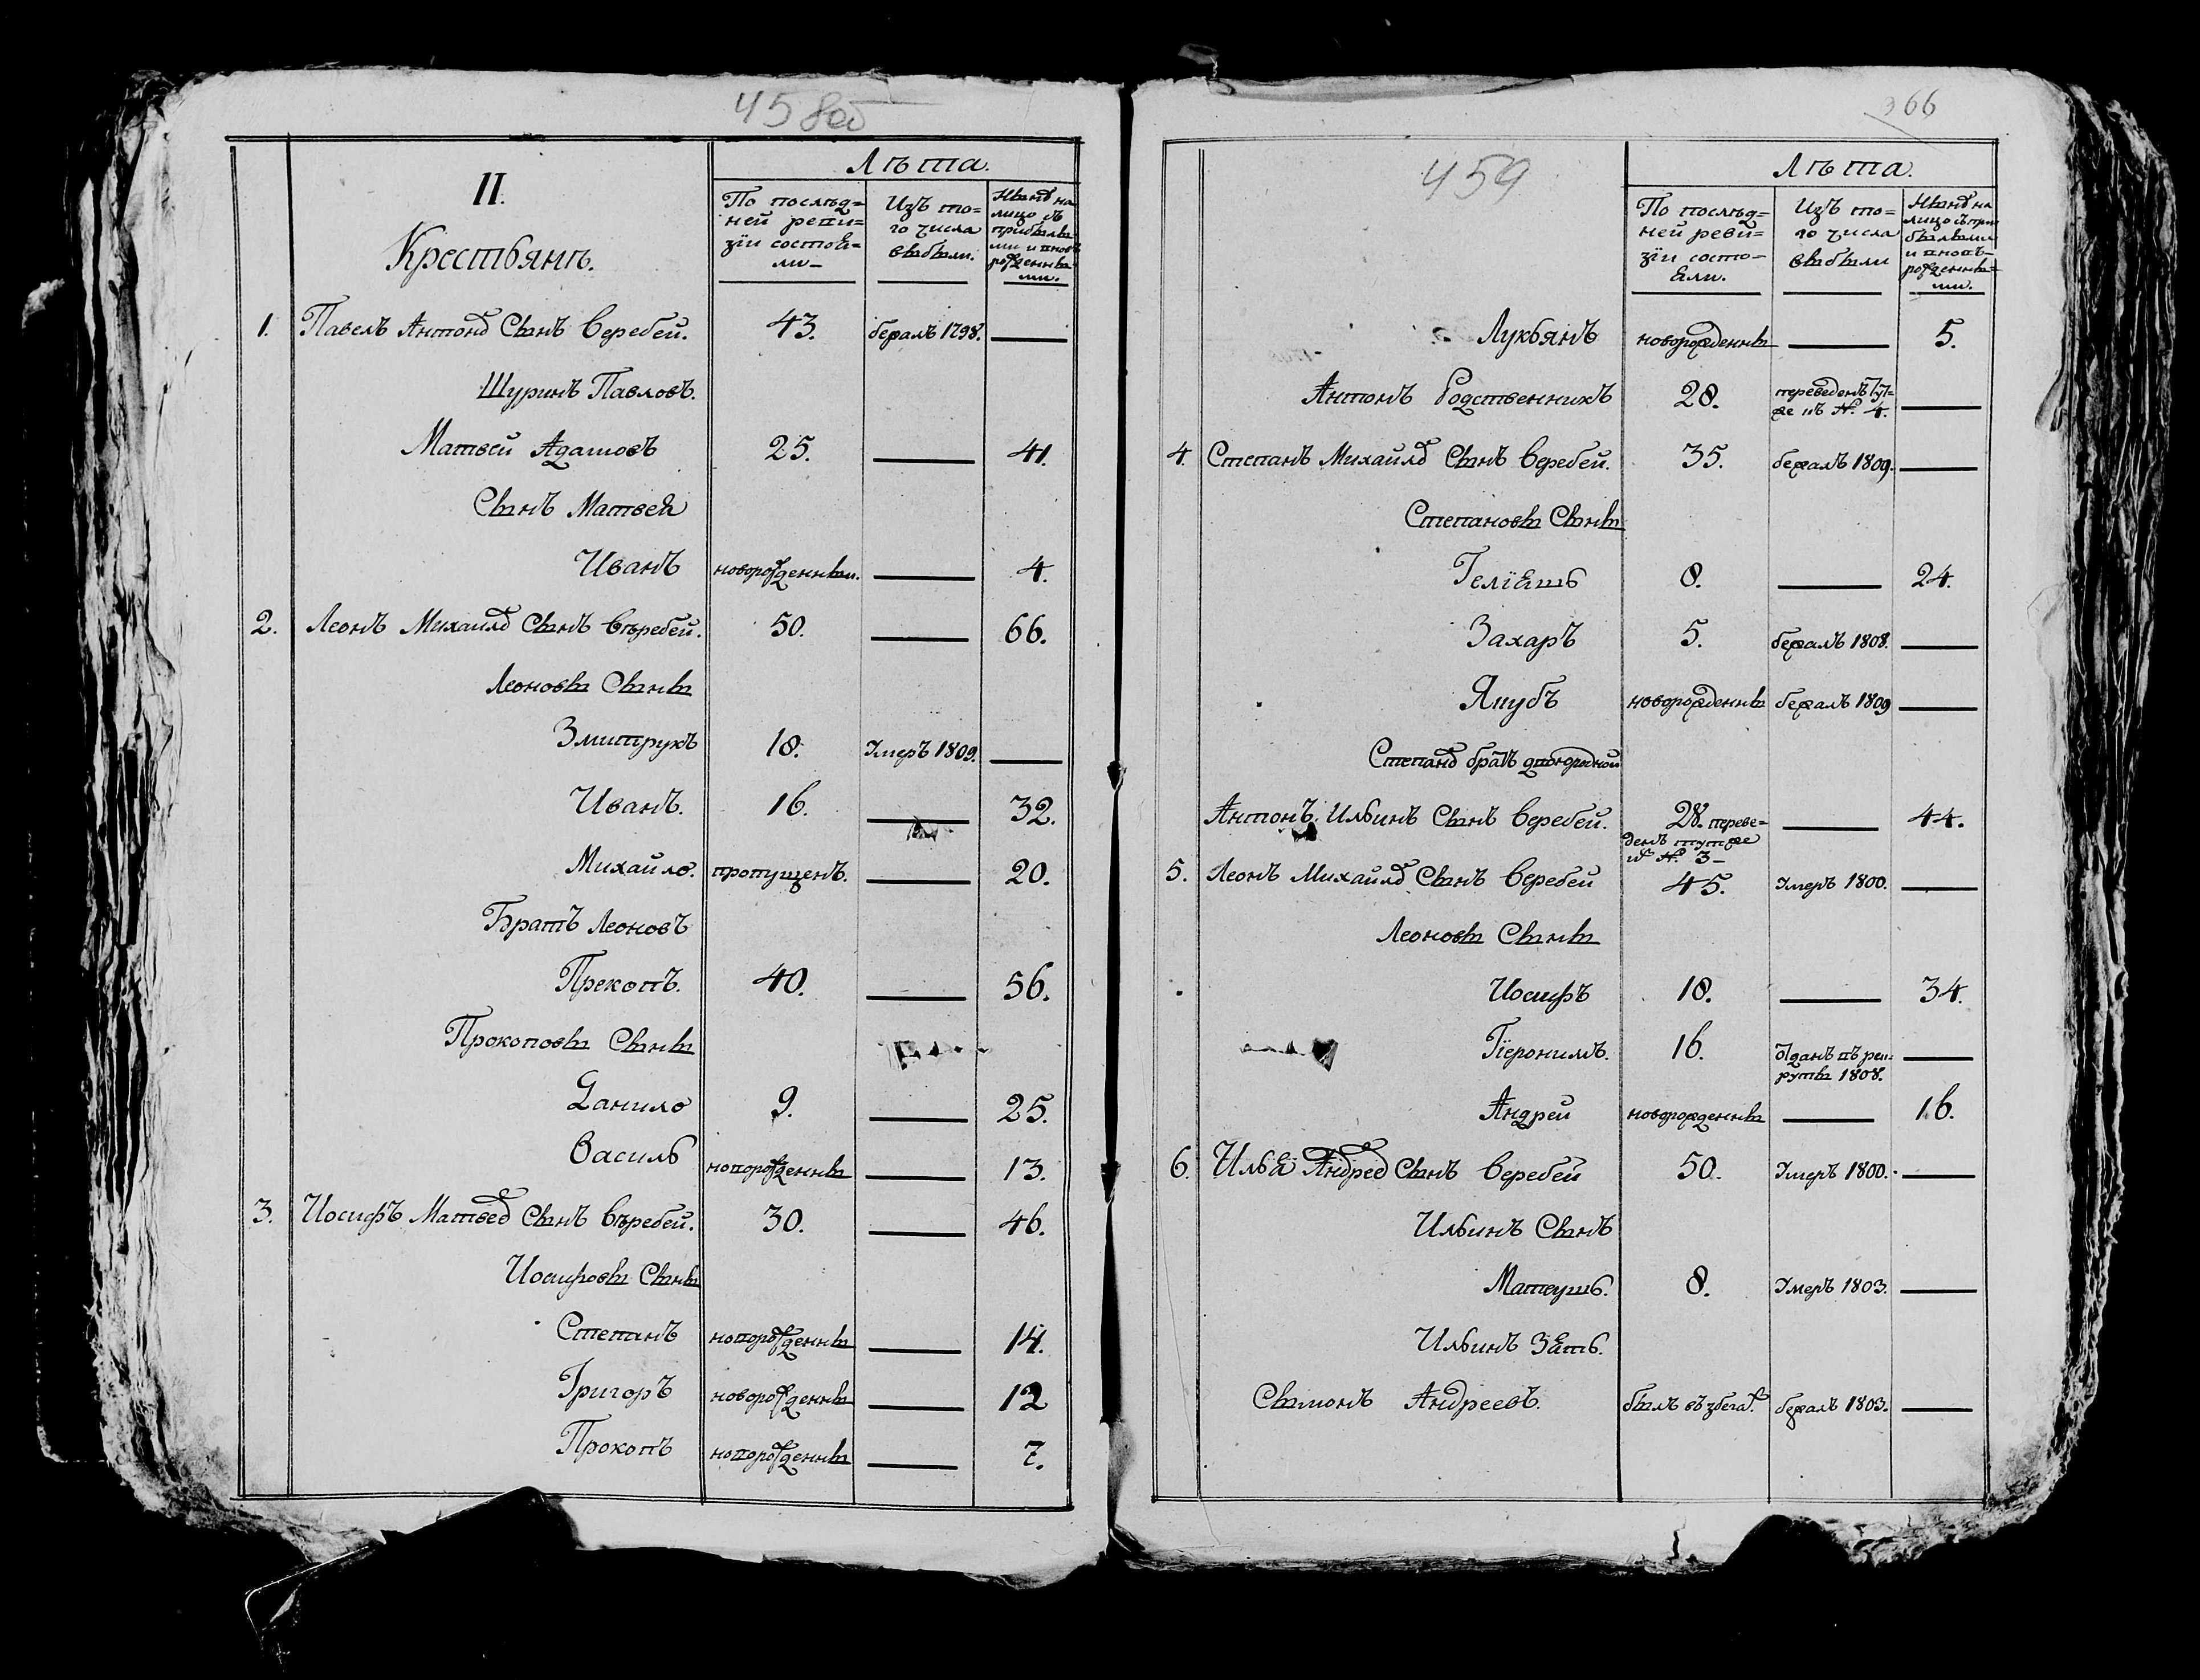 458об
II.
Крестьянъ.
Лѣта.
По послѣд=
ней реви=
зіи состоя=
ли —
Изъ то=
го числа
выбыли.
Нынѣ на
лицо съ
прибылы
ми и вновь
рожденны
ми.
1. Павелъ Антоновъ Сынъ Веребей. 43. бежалъ 1798. —
Шуринъ Павловъ.
Матвей Адамовъ 25. — 41.
Сынъ Матвея
Иванъ новорожденный. — 4.
2. Леонъ Михайловъ Сынъ Вѣребей. 50. — 66.
Леоновы Сыны
Змитрукъ 18. Умеръ 1809. —
Иванъ. 16. — 32.
Михайло. пропущенъ. — 20.
Братъ Леоновъ
Прекопъ. 40. — 56.
Прокоповы Сыны
Данило 9. — 25.
Василь новорожденны — 13.
3. Иосифъ Матвеевъ Сынъ Вѣребей. 30. — 46.
Иосифовы Сыны
Степанъ новорожденны — 14.
Григоръ новорожденны — 12
Прокопъ новорожденны — 7.
366
459
Лѣта.
По послѣд=
ней реви=
зіи состо=
яли.
Изъ то=
го числа
выбыли
Нынѣ на
лицо съ при
былыми
и вновь=
рожденны=
ми.
Лукьянъ новорожденны — 5.
Антонъ Родственникъ 28. переведенъ тут=
же въ №. 4. —
4. Степанъ Михайловъ Сынъ Веребей. 35. бежалъ 1809. —
Степановы Сыны
Геліяшь 8. — 24.
Захаръ 5. бежалъ 1808. —
Якубъ новорожденны бежалъ 1809 —
Степановъ братъ двоюродной
Антонъ Ильинъ Сынъ Веребей. 28. переве=
денъ тутже
из №. 3 — — 44.
5. Леонъ Михайловъ Сынъ Веребей 45. Умеръ 1800. —
Леоновы Сыны
Иосифъ 18. — 34.
Гіеронимъ. 16. Отданъ въ рек=
руты 1808. —
Андрей новорожденны — 16.
6. Илья Андреевъ Сынъ Веребей 50. Умеръ 1800. —
Ильинъ Сынъ
Матеушь. 8. Умеръ 1803. —
Ильинъ Зять.
Сымонъ Андреевъ. былъ въ збегах. бежалъ 1803. —